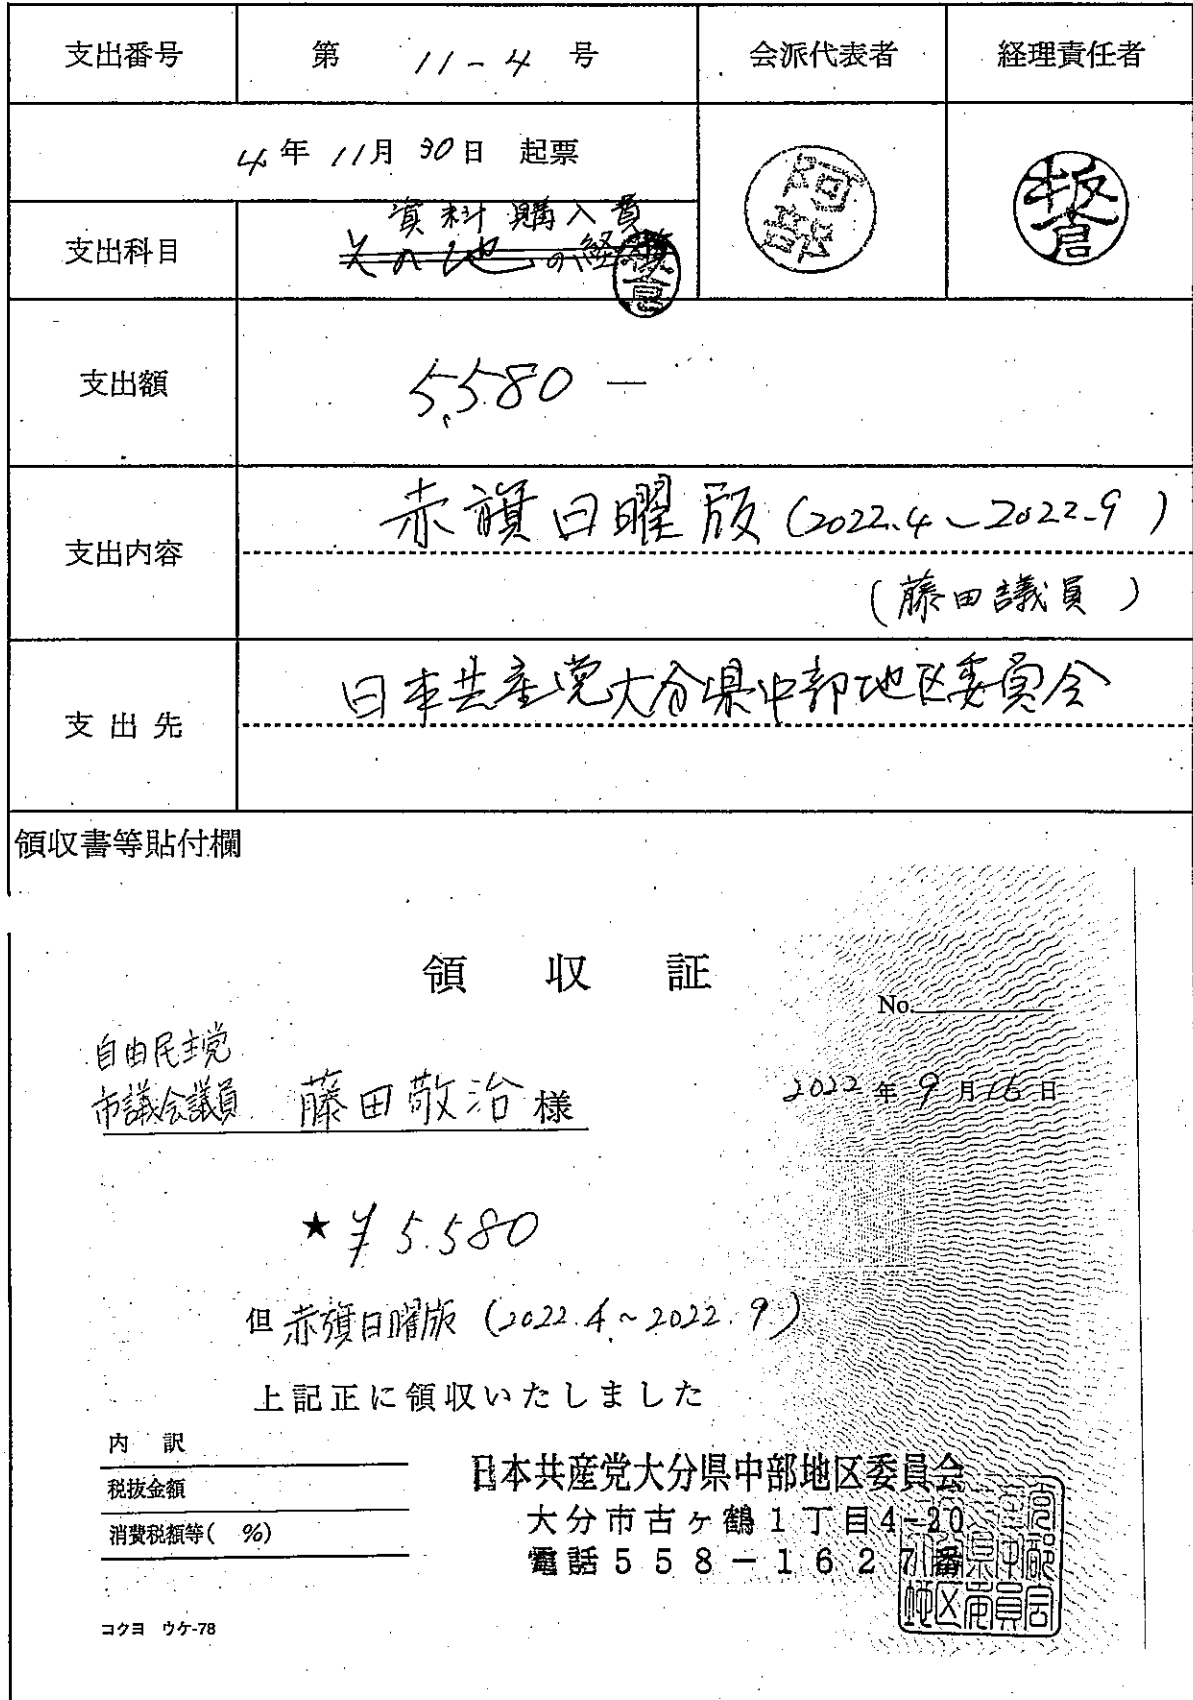 支出番号 第 11-4 号 会派代表者 経理責任者
4年 11月 30日 起票
阿部 板倉
資料購入費
支出科目 その他の経費
板倉
支出額 5,580 ―
支出内容 赤旗日曜版 (2022.4～2022.9)
(藤田議員)
支出先 日本共産党大分県中部地区委員会
領収書等貼付欄
領収証
No.
自由民主党
市議会議員 藤田敬治様 2022年9月16日
★ ¥5.580
但 赤旗日曜版 (2022.4～2022.9)
上記正に領収いたしました
内訳
税抜金額
消費税額等( %)
日本共産党大分県中部地区委員会
大分市古ヶ鶴1丁目4-20
電話558-1627番
コクヨ ウケ-78